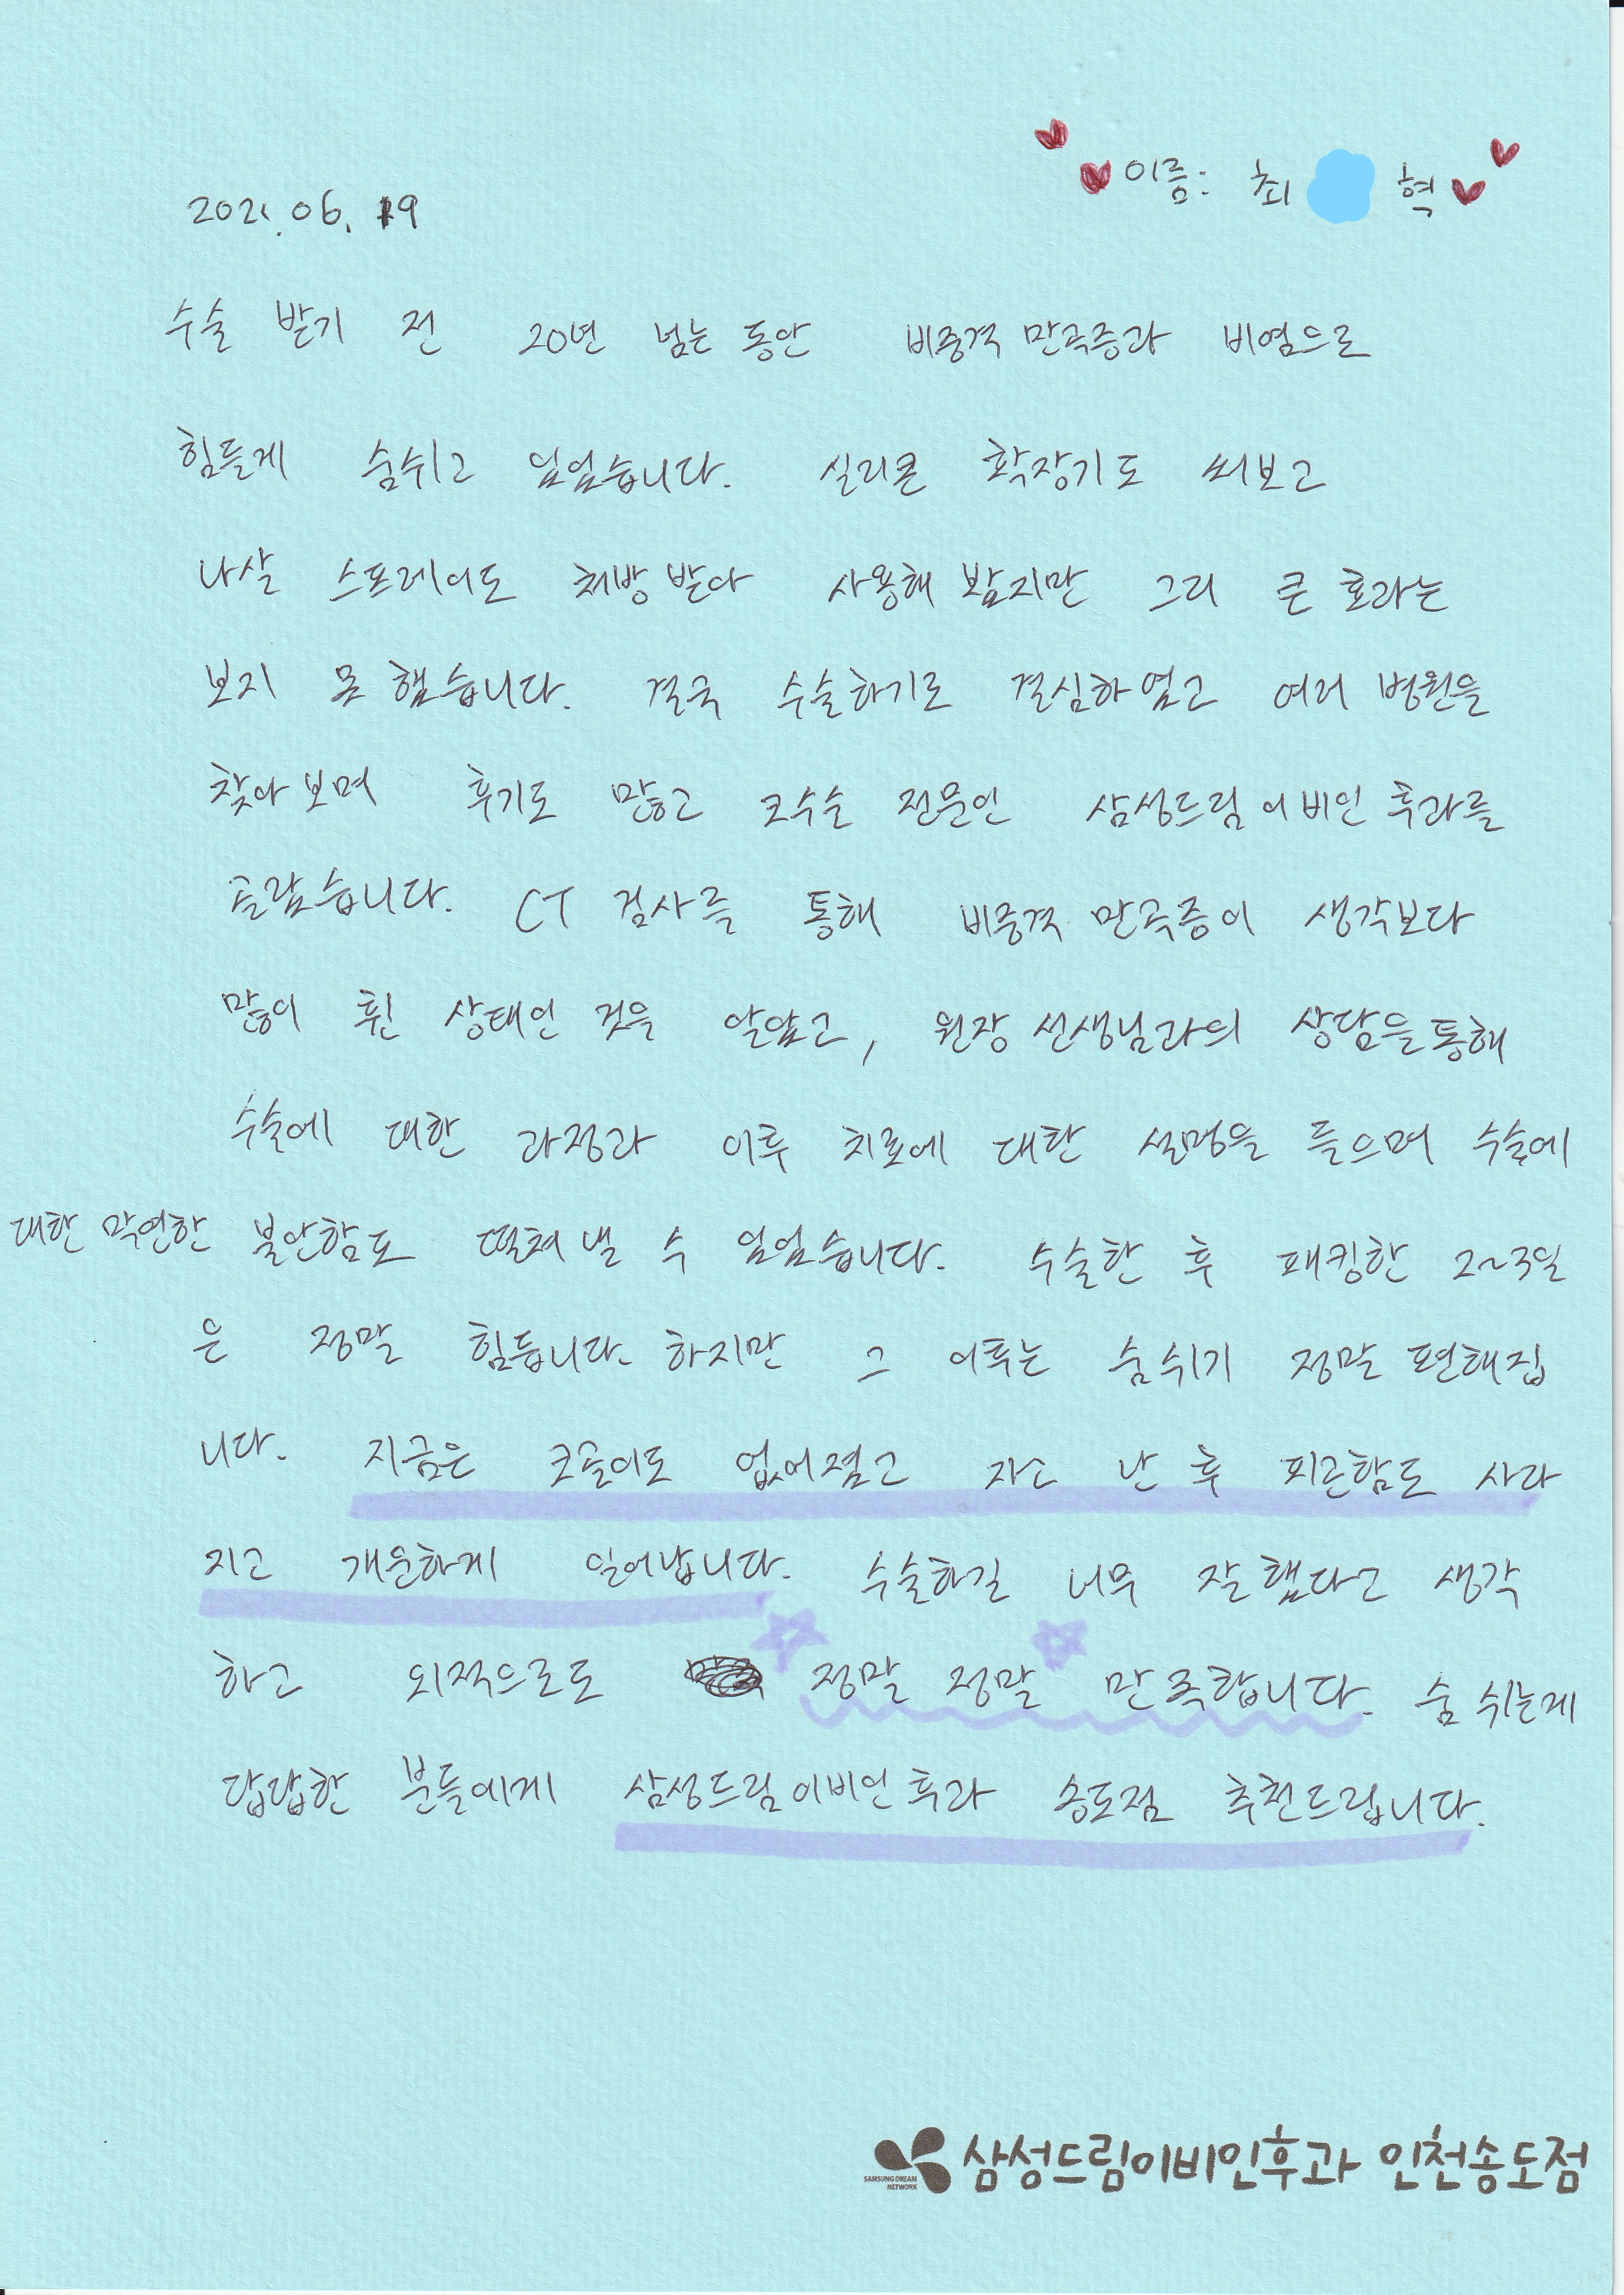 이름: 최 혁
2021. 06. 19
수술 받기 전 20년 넘는 동안 비중격 만곡증과 비염으로
힘들게 숨쉬고 있었습니다. 실리콘 확장기도 써보고
나살 스프레이도 처방 받아 사용해 봤지만 그리 큰 효과는
보지 못 했습니다. 결국 수술하기로 결심하였고 여러 병원을
찾아보며 후기도 많고 코수술 전문인 삼성드림이비인후과를
골랐습니다. CT 검사를 통해 비중격 만곡증이 생각보다
많이 휜 상태인 것을 알았고, 원장 선생님과의 상담을 통해
수술에 대한 과정과 이후 치료에 대한 설명을 들으며 수술에
대한 막연한 불안함도 떨쳐 낼 수 있었습니다. 수술한 후 패킹한 2~3일
은 정말 힘듭니다. 하지만 그 이후는 숨쉬기 정말 편해집
니다. 지금은 코골이도 없어졌고 자고 난 후 피곤함도 사라
지고 개운하게 일어납니다. 수술하길 너무 잘했다고 생각
하고 외적으로도 정말 정말 만족합니다. 숨 쉬는게
답답한 분들에게 삼성드림이비인후과 송도점 추천드립니다.
SAMSUNG DREAM NETWORK 삼성드림이비인후과 인천송도점